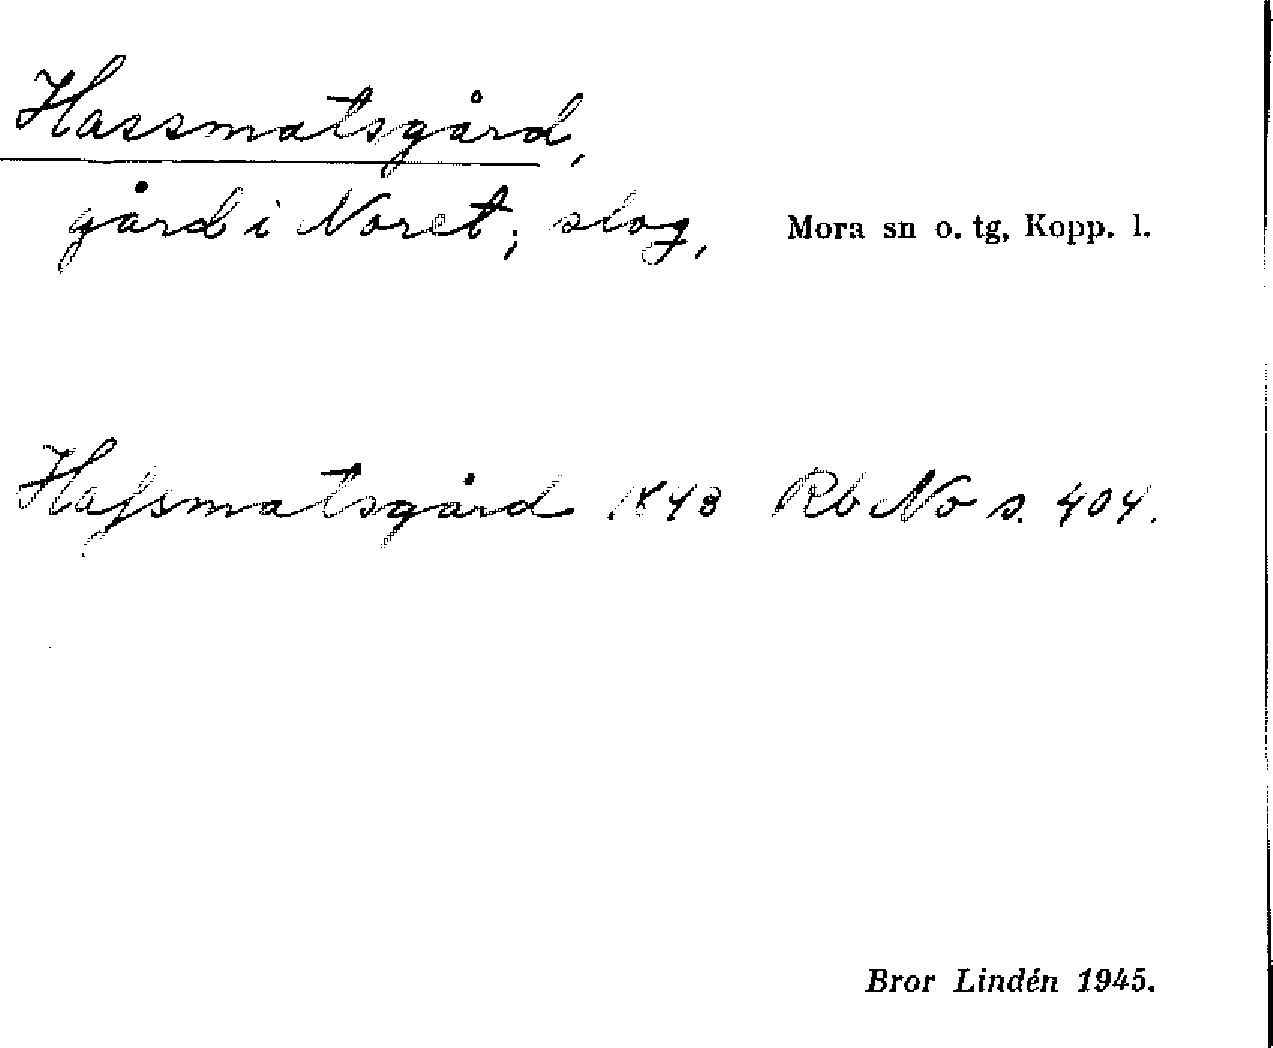 Hassmatsgård,
gård i Noret; slog, Mora sn o. tg, Kopp. l.
Haſsmatsgård 1848 Rb No s. 404.
Bror Lindén 1945.